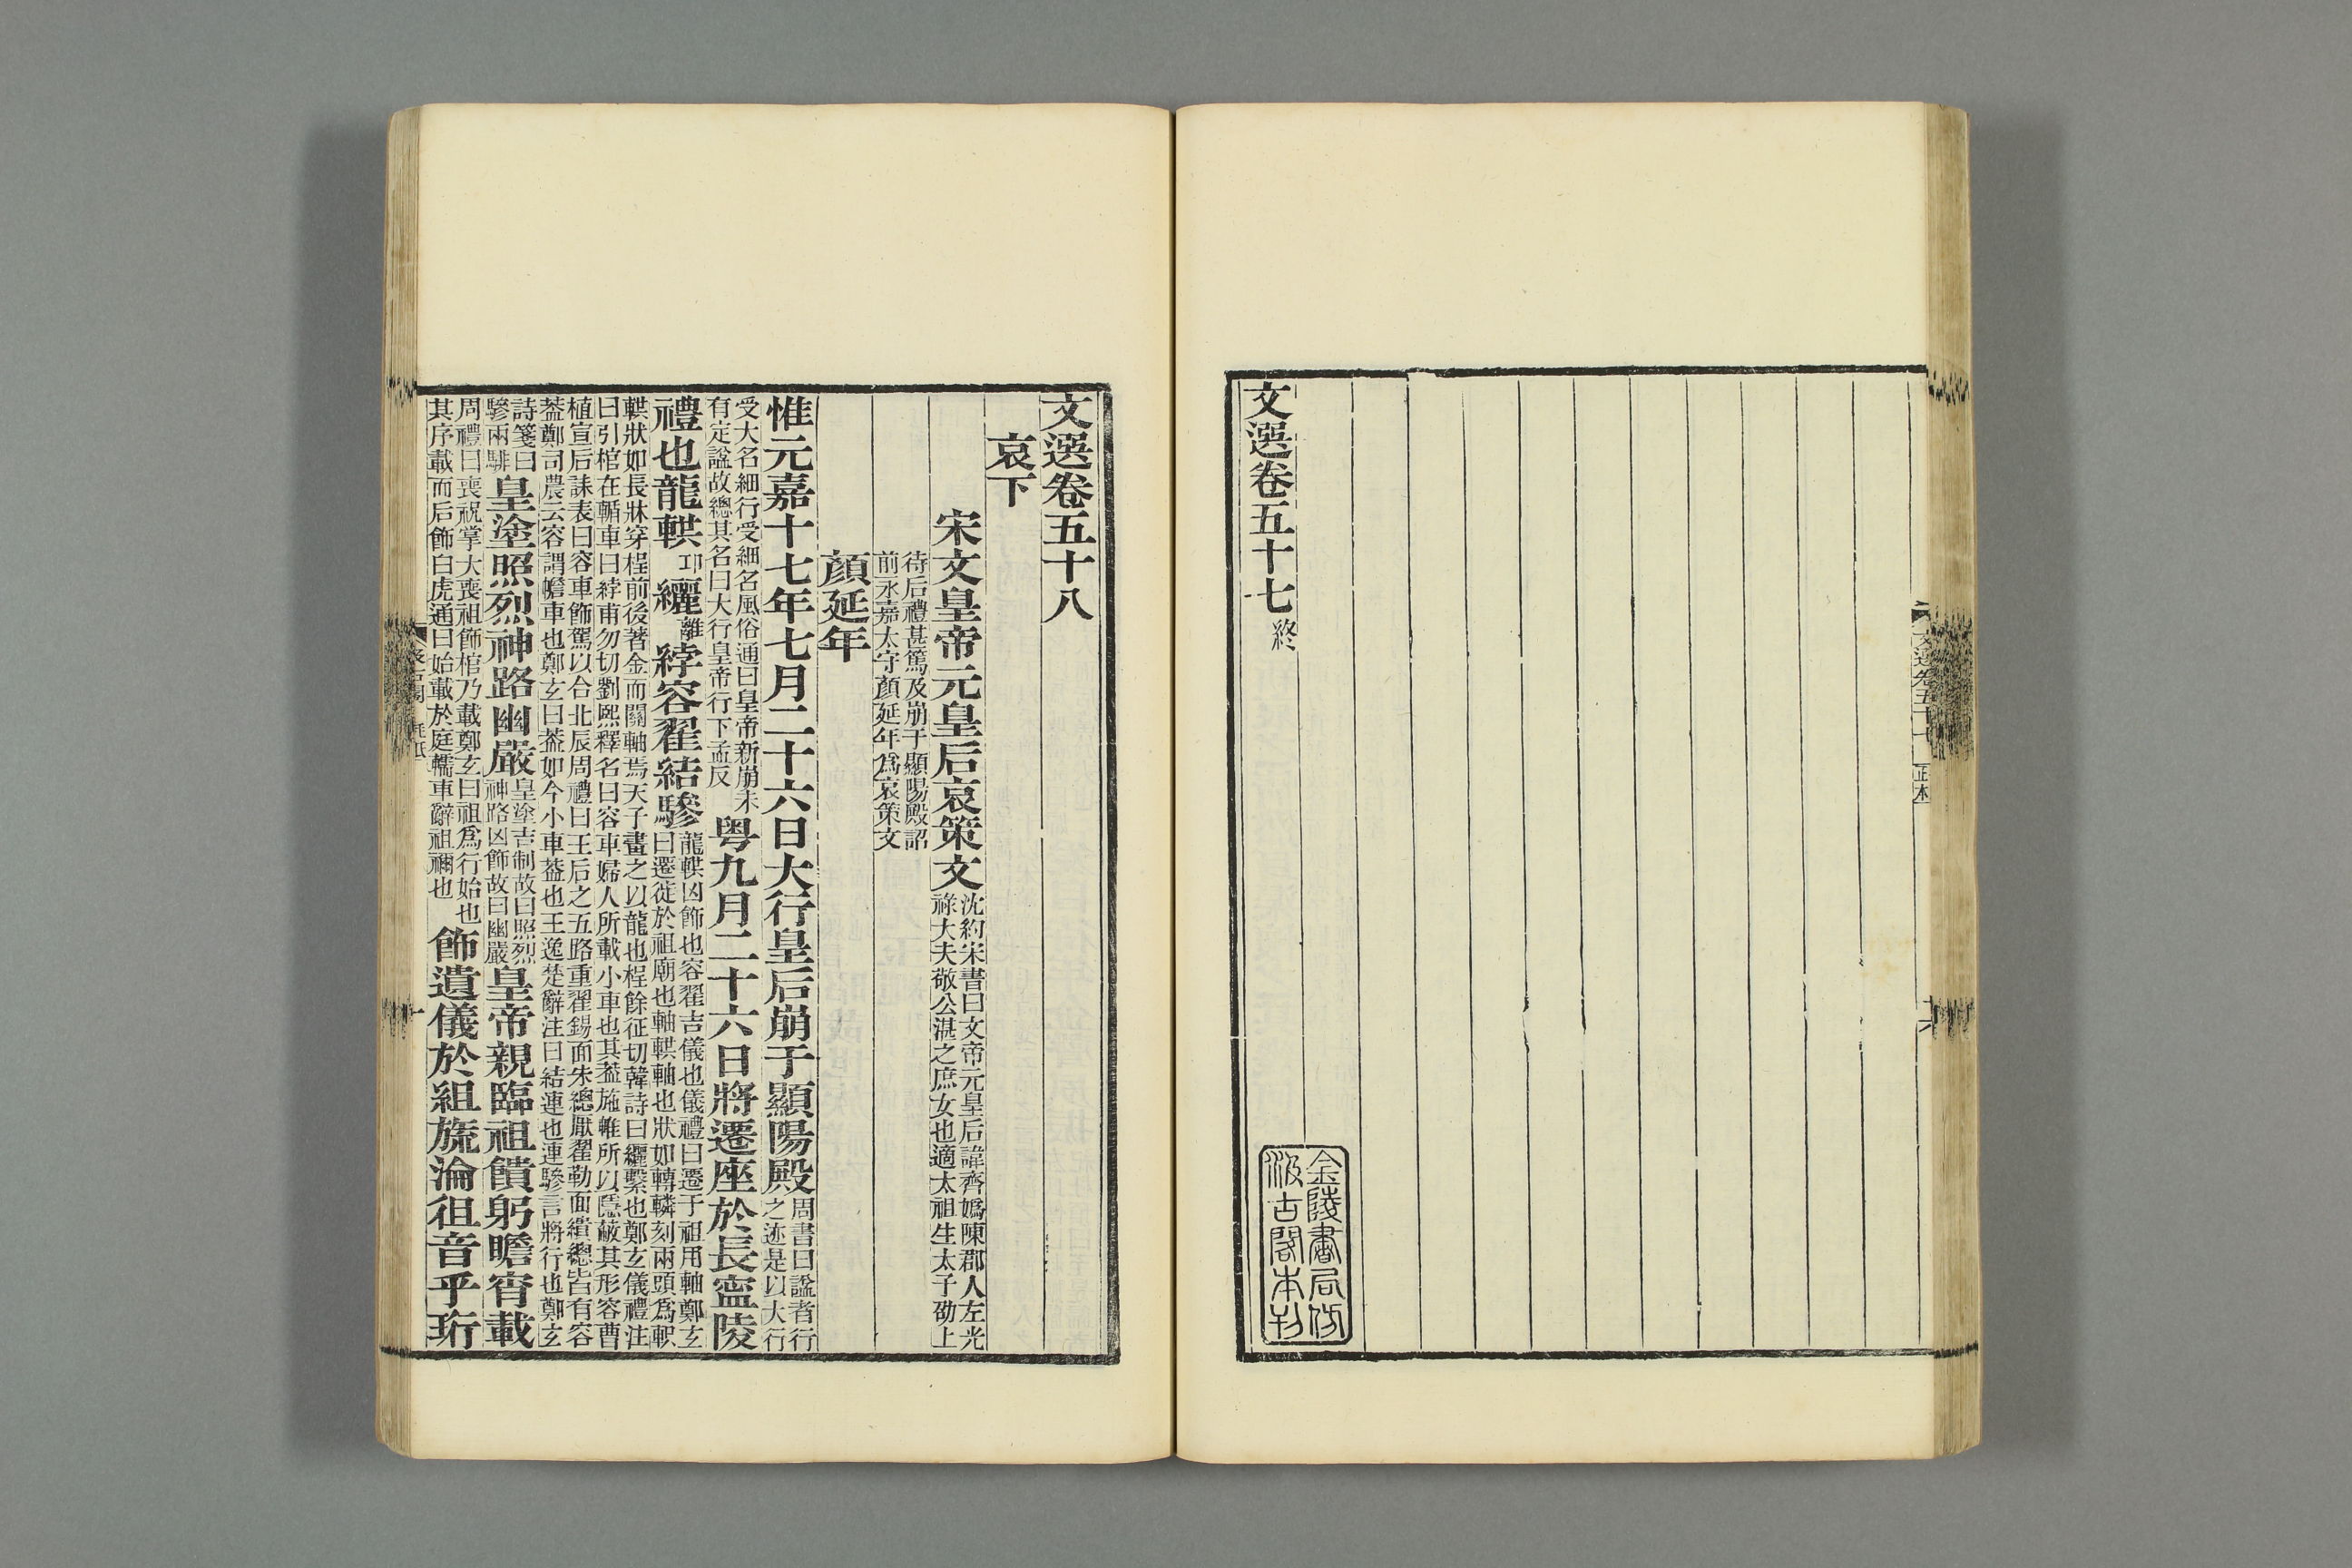 文選卷五十七
文選卷五十七終
金陵書局仿
汲古閣本刊
文選卷五十八
哀下
宋文皇帝元皇后哀策文沈約宋書曰文帝元皇后諱齊嬀陳郡人左光
祿大夫敬公湛之庶女也適太祖生太子劭上
待后禮甚篤及崩于顯陽殿詔
前永嘉太守顏延年爲哀策文
顏延年
惟元嘉十七年七月二十六日大行皇后崩于顯陽殿周書曰謚者行
之迹是以大行
受大名細行受細名風俗通曰皇帝新崩未
有定謚故總其名曰大行皇帝行下孟反
粵九月二十六日將遷座於長寧陵
禮也龍輁卭纚離綍容翟結驂龍輁凶飾也容翟吉儀也儀禮曰遷于祖用軸鄭玄
曰遷徙於祖廟也軸輁軸也狀如轉轔刻兩頭爲軹
輁狀如長牀穿桯前後著金而關軸焉天子畫之以龍也桯餘征切韓詩曰纚繫也鄭玄儀禮注
曰引棺在輴車曰綍甫勿切劉熙釋名曰容車婦人所載小車也其葢施帷所以隱蔽其形容曹
植宣后誄表曰容車飾駕以合北辰周禮曰王后之五路重翟錫面朱總厭翟勒面繢總皆有容
葢鄭司農云容謂幨車也鄭玄曰葢如今小車葢也王逸楚辭注曰結連也連驂言將行也鄭玄
詩箋曰
驂兩騑
皇塗照烈神路幽嚴皇塗吉制故曰照烈
神路凶飾故曰幽嚴
皇帝親臨祖饋躬瞻宵載
周禮曰喪祝掌大喪祖飾棺乃載鄭玄曰祖爲行始也
其序載而后飾白虎通曰始載於庭轜車辭祖禰也
飾遺儀於組旒淪徂音乎珩